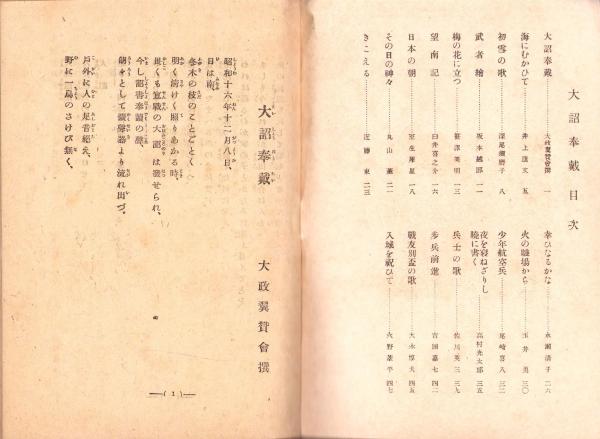 大詔奉戴 目次
大詔奉戴……大政翼賛會撰 一
海にむかひて……井上康文 五
初雪の歌……深尾須磨子 八
武者繪……坂本越郎 一一
梅の花に立つ……笹澤美明 一三
望南記……臼井喜之介 一六
日本の朝……室生犀星 一八
その日の神々……丸山薫 二一
きこえる……近藤東 二三
幸ひなるかな……永瀬清子 二六
火の職場から……玉井勇 三〇
少年航空兵……尾崎喜八 三二
夜を寝ねざりし
曉に書く……高村光太郎 三五
兵士の歌……佐川英三 三九
步兵前進……吉田嘉七 四二
戰友別盃の歌……大木惇夫 四五
入城を祝ひて……火野葦平 四七
大詔奉戴
大政翼賛會撰
昭和十六年十二月八日、
日は南、
冬木の枝のことごとく
明く清けく照りあかる時、
畏くも宣戰の大詔は發せられ、
今し詔書奉讀の聲、
朗々として擴聲器より流れ出づ。
戶外に人の足音絕え、
野に一鳥のさけび無く、
(1)